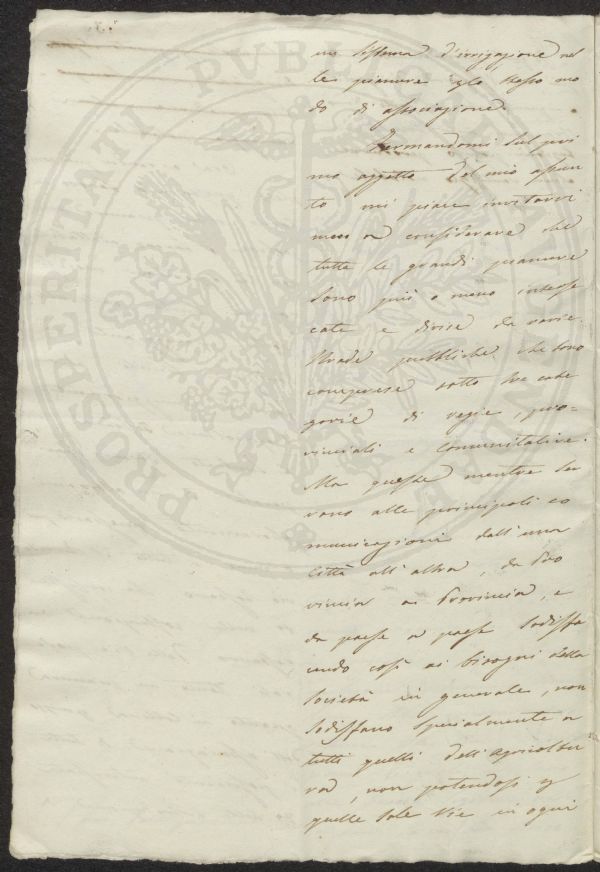 un sistema d'irrigazione nel
le pianure collo stesso mo
do di associazione.
Fermandomi sul pri
mo oggetto del mio assun
to mi piace invitarvi
meco a considerare che
tutte le grandi pianure
sono più o meno interse
cate e divise da varie
strade pubbliche che sono
comprese sotto tre cate
gorie di regie, pro-
vinciali e comunitative.
Ma queste mentre ser
vono alle principali co
municazioni dall'una
Città all'altra, da Pro
vincia a Provincia, e
da paese a paese sodisfa
cendo così ai bisogni della
società in generale, non
sodisfano specialmente a
tutti quelli dell'agricoltu
ra, non potendosi
quelle sole vie in ogni
PROSPERITATI PUBLICAE